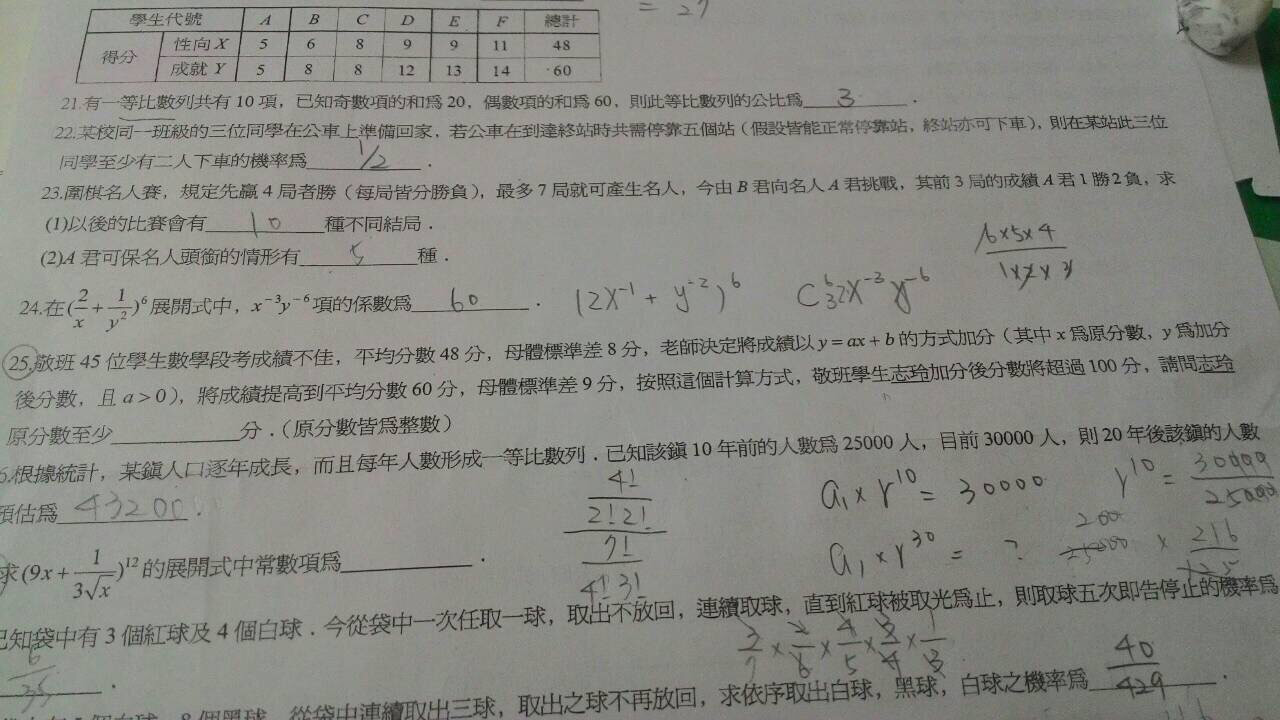 = 27
學生代號 A B C D E F 總計
得分 性向 X 5 6 8 9 9 11 48
成就 Y 5 8 8 12 13 14 60
21.有一等比數列共有 10 項，已知奇數項的和為 20，偶數項的和為 60，則此等比數列的公比為 3 .
22.某校同一班級的三位同學在公車上準備回家，若公車在到達終站時共需停靠五個站（假設皆能正常停靠站，終站亦可下車），則在某站此三位
同學至少有二人下車的機率為 1/2 .
23.圍棋名人賽，規定先贏 4 局者勝（每局皆分勝負），最多 7 局就可產生名人，今由 B 君向名人 A 君挑戰，其前 3 局的成績 A 君 1 勝 2 負，求
(1)以後的比賽會有 10 種不同結局．
(2)A 君可保名人頭銜的情形有 5 種．
6×5×4 / 1×2×3
24.在(2/x + 1/y²)⁶ 展開式中，x⁻³y⁻⁶ 項的係數為 60 . (2X⁻¹ + y⁻²)⁶ C⁶₃2X⁻³y⁻⁶
25.敬班 45 位學生數學段考成績不佳，平均分數 48 分，母體標準差 8 分，老師決定將成績以 y = ax + b 的方式加分（其中 x 為原分數，y 為加分
後分數，且 a > 0），將成績提高到平均分數 60 分，母體標準差 9 分，按照這個計算方式，敬班學生志玲加分後分數將超過 100 分，請問志玲
原分數至少 分．（原分數皆為整數）
6.根據統計，某鎮人口逐年成長，而且每年人數形成一等比數列．已知該鎮 10 年前的人數為 25000 人，目前 30000 人，則 20 年後該鎮的人數
預估為 43200 .
4! / 2!2! / 7! / 4!3!
a₁ × r¹⁰ = 30000 r¹⁰ = 30000 / 25000
a₁ × r³⁰ = ? 200 25000 × 216 / 125
求(9x + 1/3√x)¹² 的展開式中常數項為 .
已知袋中有 3 個紅球及 4 個白球．今從袋中一次任取一球，取出不放回，連續取球，直到紅球被取光為止，則取球五次即告停止的機率為
6/35 .
3/7 × 2/6 × 4/5 × 3/4 × 1/3
個黑球，從袋中連續取出三球，取出之球不再放回，求依序取出白球，黑球，白球之機率為 40/429 .